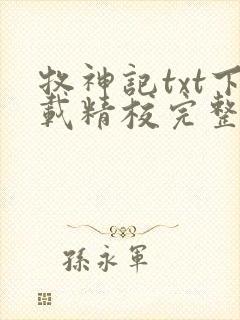 牧神記txt下
載精校完整
孫永軍